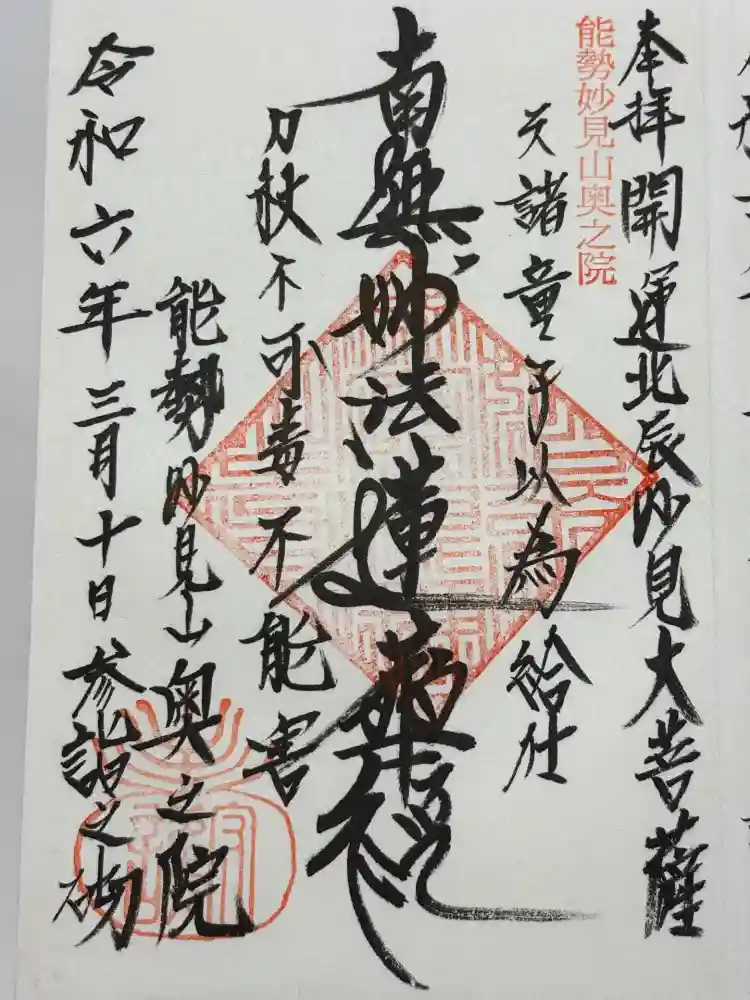 奉拝 開運北辰妙見大菩薩
能勢妙見山奥之院
天諸童子以為給仕
南無妙法蓮華経
刀杖不可毒不能害
能勢妙見山奥之院
令和六年三月十日参詣之砌